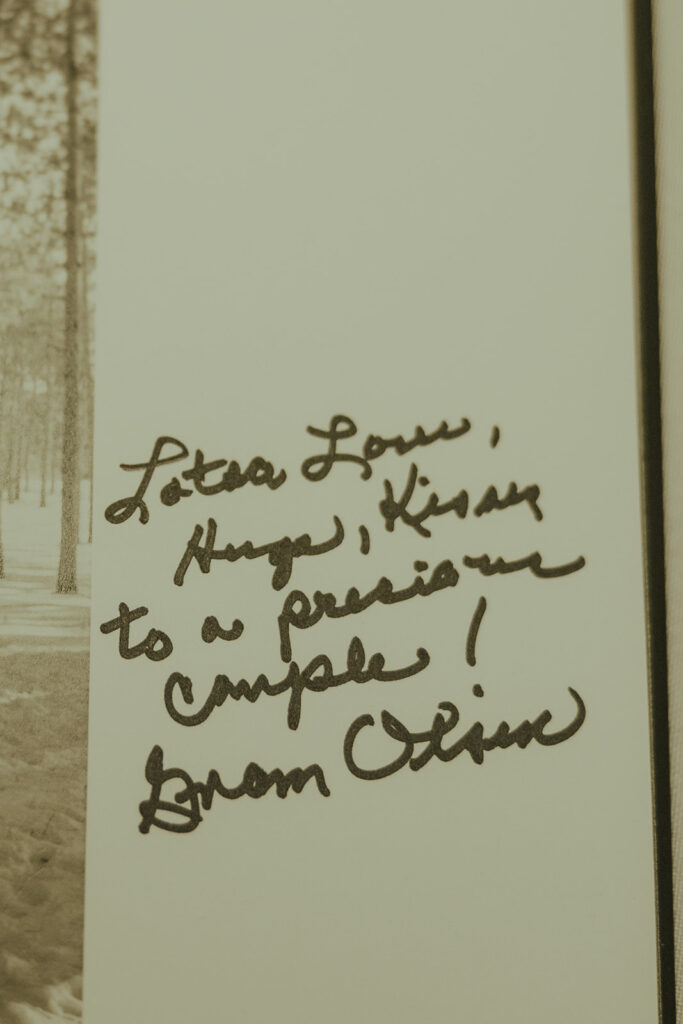 Lotsa Love,
Hugs, Kisses
to a precious
couple!
Gram Olsen